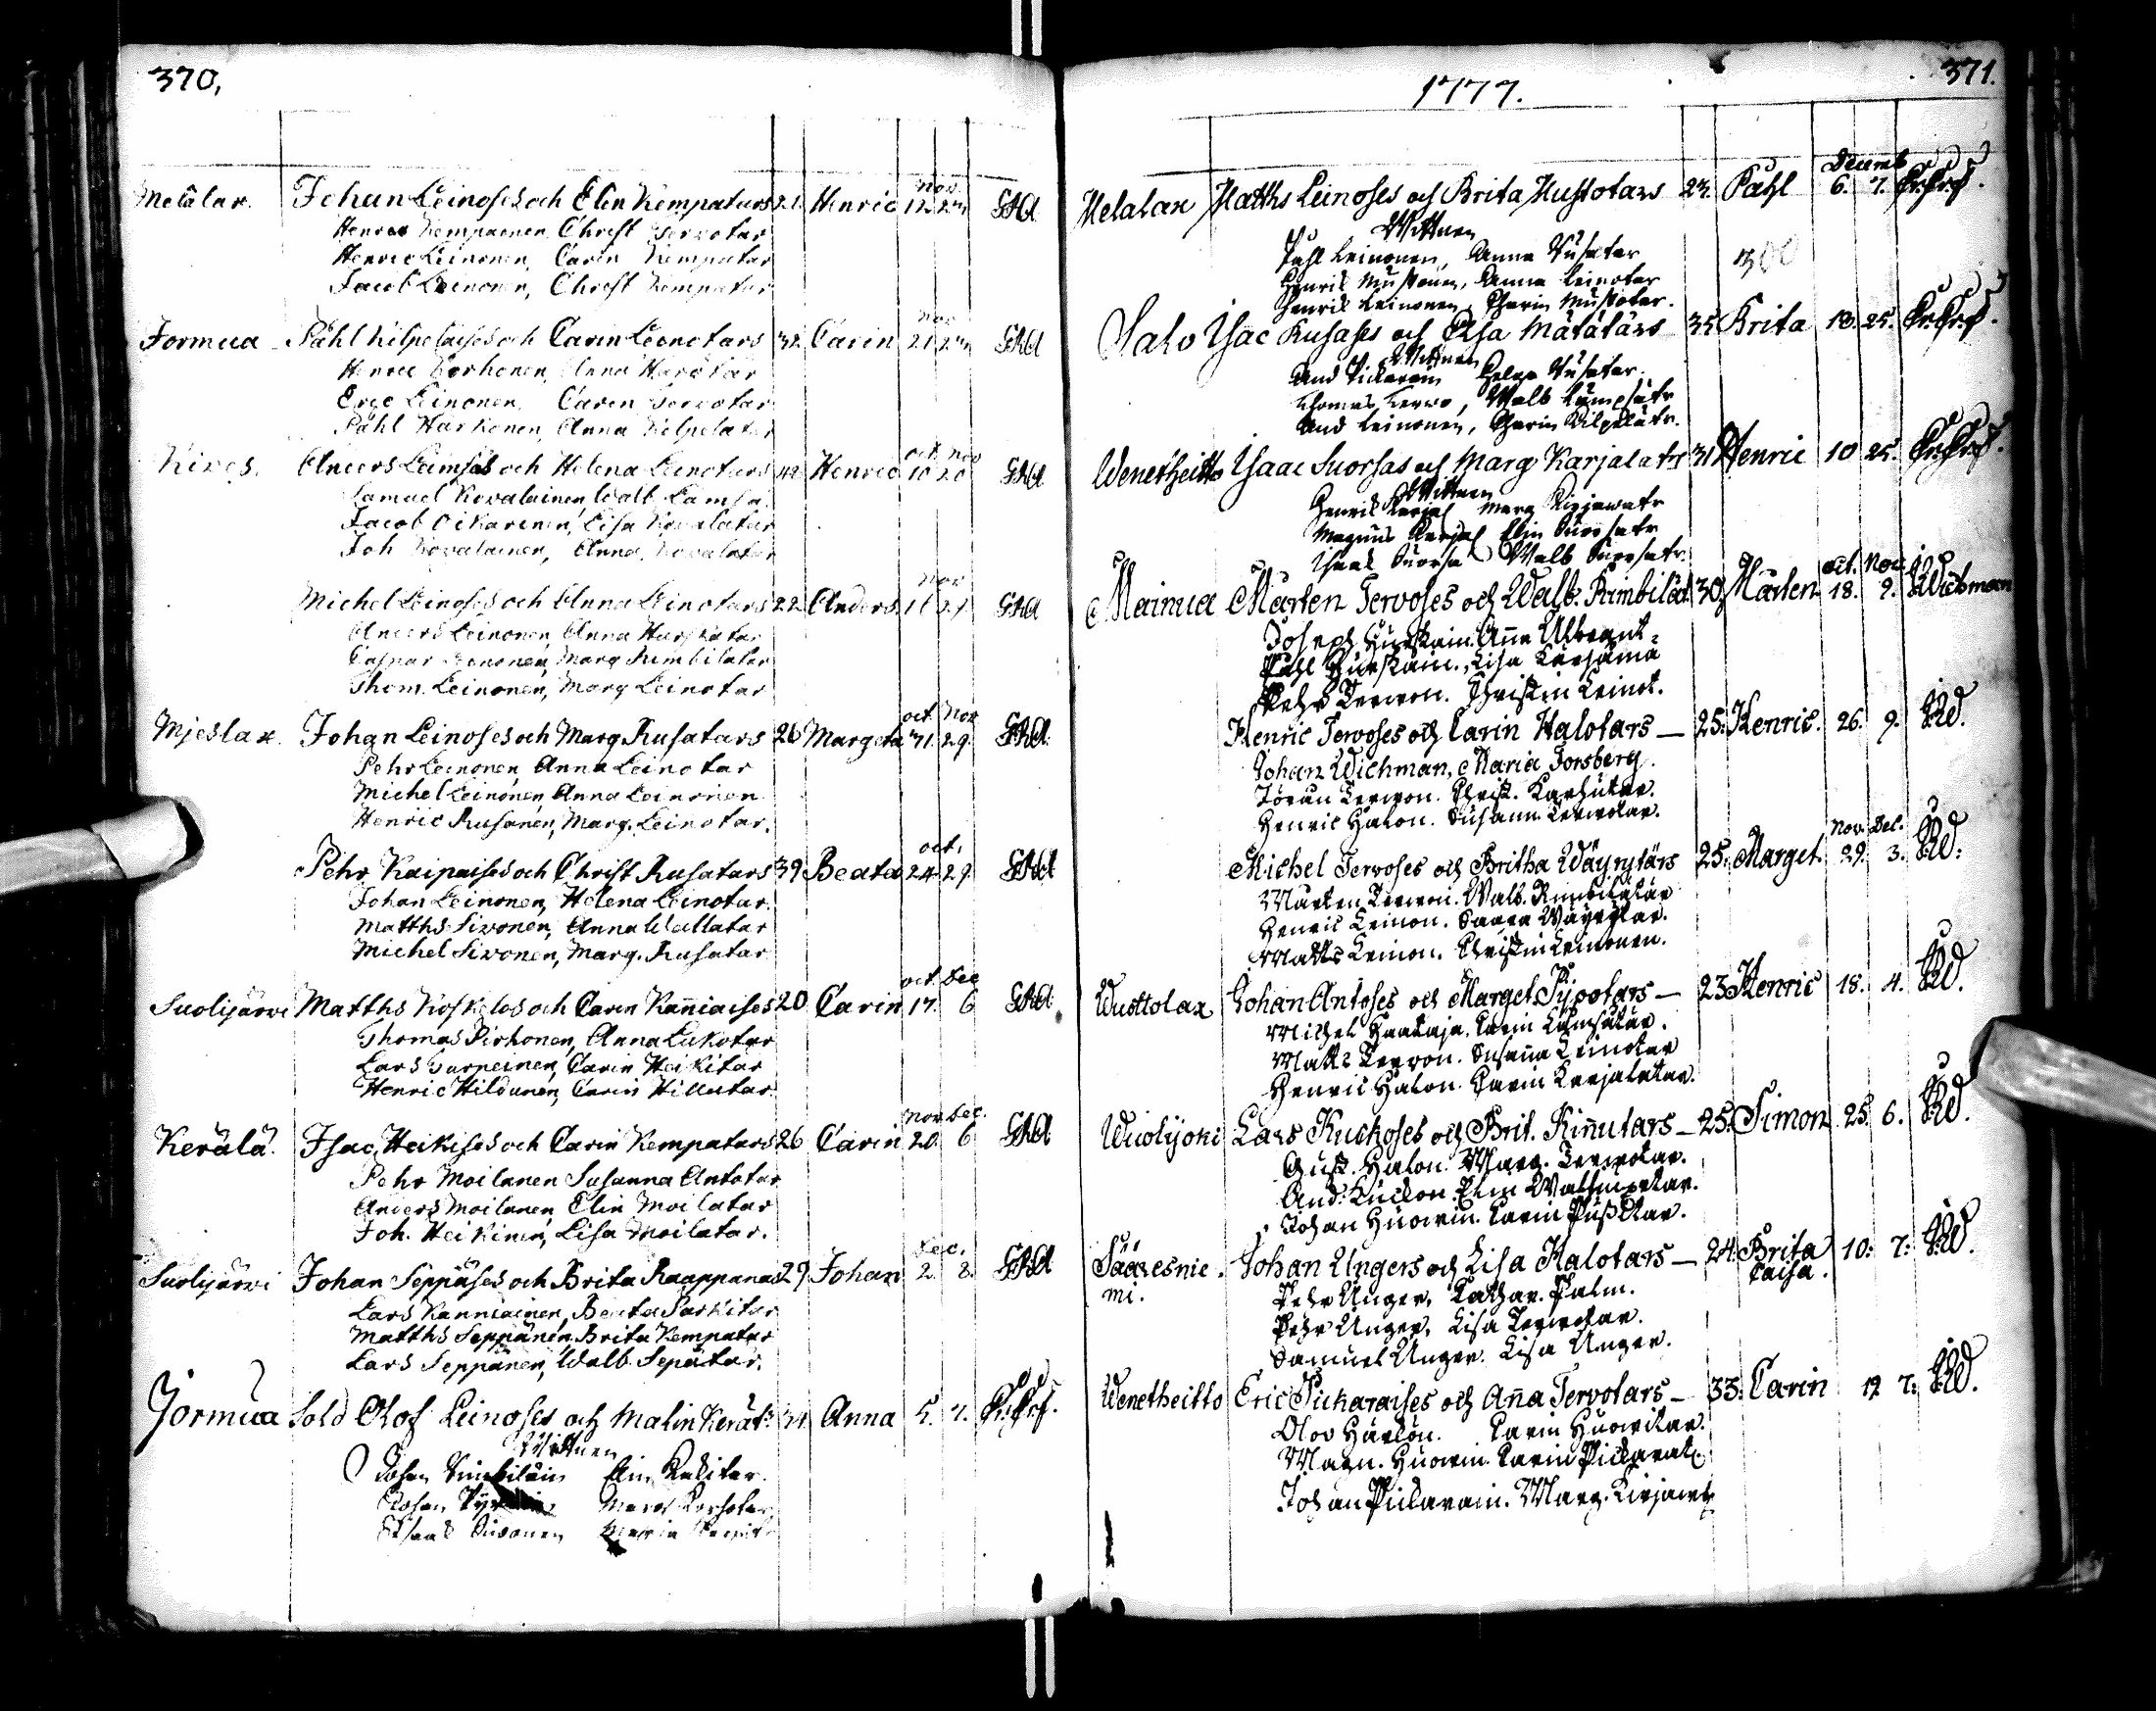 370.
Melalax Johan Leinoses och Elin Kempatars 21. Henric 12. 23 nov
Henric Kempainen Christ
Henric Leinonen, Carin Kempatar
Jacob Leinonen, Christ Kempatar
Jormua Påhl Kilpelaises och Carin Leinotars 32. Carin 21 23 nov
Henric Korhonen, Anna
Eric Leinonen, Carin
Påhl Harkonen, Anna Kilpelatar
Kives. Anders Lämsäs och Helena Leinotars 42 Henric oct. 10 nov 20
Samuel Kovalainen, Walb Lamsa
Jacob Oikarinen, Lisa Kovalatar
Joh Kovalainen, Anna Kovalatar
Michel Leinoses och Anna Leinotars 22. Anders nov
Anders Leinonen, Anna
Caspar Leinonen, Marg Rimbilatar
Thom. Leinonen, Marg Leinotar
Mjeslax. Johan Leinoses och Marg. Rusatars 26 Margeta oct. 31. nov 29.
Pehr Leinonen, Anna Leinotar
Michel Leinonen, Anna Leinonen
Henric Rusanen, Marg. Leinotar.
Pehr Kaipaises och Christ Rusatars 39 Beata oct. 24 29.
Johan Leinonen, Helena Leinotar.
Matths Sivonen, Anna Wallatar
Michel Sivonen, Marg. Rusatar
Suolijärvi Matths Koskelos och Carin Kañiaises 20 Carin oct. 17. dec 6
Thomas Pirhonen, Anna Lukotar
Lars Turpeinen, Carin Heikitar
Henric Hildunen, Carin Hillutar.
Kerälä. Isac Heikises och Carin Kempatars 26 Carin nov 20. dec. 6
Pehr Moilanen Susanna Antotar
Anders Moilanen, Elin Moilatar
Joh. Heikinen, Lisa Moilatar.
Suolijärvi Johan Seppäses och Brita Raappanas 29 Johan dec. 2. 8.
Lars Kanniainen, Beata Parkitar
Matths Seppänen, Brita Kempatar
Lars Seppänen, Walb. Sepätar.
Jormua Sold Olof Leinoses och Malin Kerät: 31. Anna 5. 7.
Wittnen
Johan Rimbiläin Elin
Johan
Isaac Sivonen Maria
1777. 371.
Melalax Matths Leinoses och Brita Mustotars 23. Påhl Decemb 6. 7.
Wittnen
Påhl Leinonen, Anna Rusatar
Henrik Mustonen, Anna Leinotar
Henrik Leinonen, Charin Mustotar.
300
Salo Isac Rusases och Elsa Mätätärs 35. Brita 13. 25.
Wittnen
And Pickarain Helga Rusatar.
Thomas Tervo, Walb Kämpsätr
And Leinonen, Charin Kilpelätr.
Wenetheitto Isaac Suorsas och Marg Karjalatrs 31 Henric 10 25.
Wittnen
Henrik Karjal Marg Kirjawatr
Magnus Karjal Elin Suorsatr
Isaak Suorsa Walb Suorsatr.
Mainua Mårten Tervoses och Walb. Rimbilät 30. Mårten oct. 18. Nov. 9. Wichman
Joseph Hurskain. Aña
Påhl Hurskain., Lisa Kärsämä
Pehr Tervon. Christin Leinot.
Henric Tervoses och Carin Halotars — 25. Henric. 26. 9.
Johan Wichman, Maria Forsberg.
Jöran Tervon. Christ. Karhutar.
Henric Halon. Susann Tervotar.
Michel Tervoses och Britha Wäyrytärs 25. Marget. Nov. 29. Dec. 3.
Mårten Tervon. Walb. Rimbilätär
Henric Leinon. Saara Wäyrytar.
Matts Leinon. Christin Leinonen.
Wuottolax Johan Antoses och Marget Pijpotars — 23. Henric 18. 4.
Michel Haataja. Carin Lämsätär.
Matts Tervon. Susaña Leinotar
Henric Halon. Carin Karjalatar.
Wuolijoki Lars Kuckoses och Brit. Kiñutars — 25. Simon 25. 6.
Gust. Halon. Marg. Tervotar.
And. Kuckon. Elin
Johan Huovin. Carin
Sääresnie- mi. Johan Ungers och Lisa Halotars — 24. Brita Caisa. 10. 7.
Pehr Unger. Cathar. Palm.
Pehr Unger. Lisa Tervotar.
Samuel Unger. Lisa Unger.
Wenetheitto Eric Pickaraises och Aña Tervotars — 33. Carin 12 7.
Olov Härkön. Carin Huovitar.
Magn. Huovin. Carin Pickarat.
Johan Pickarain. Marg. Kirjawat